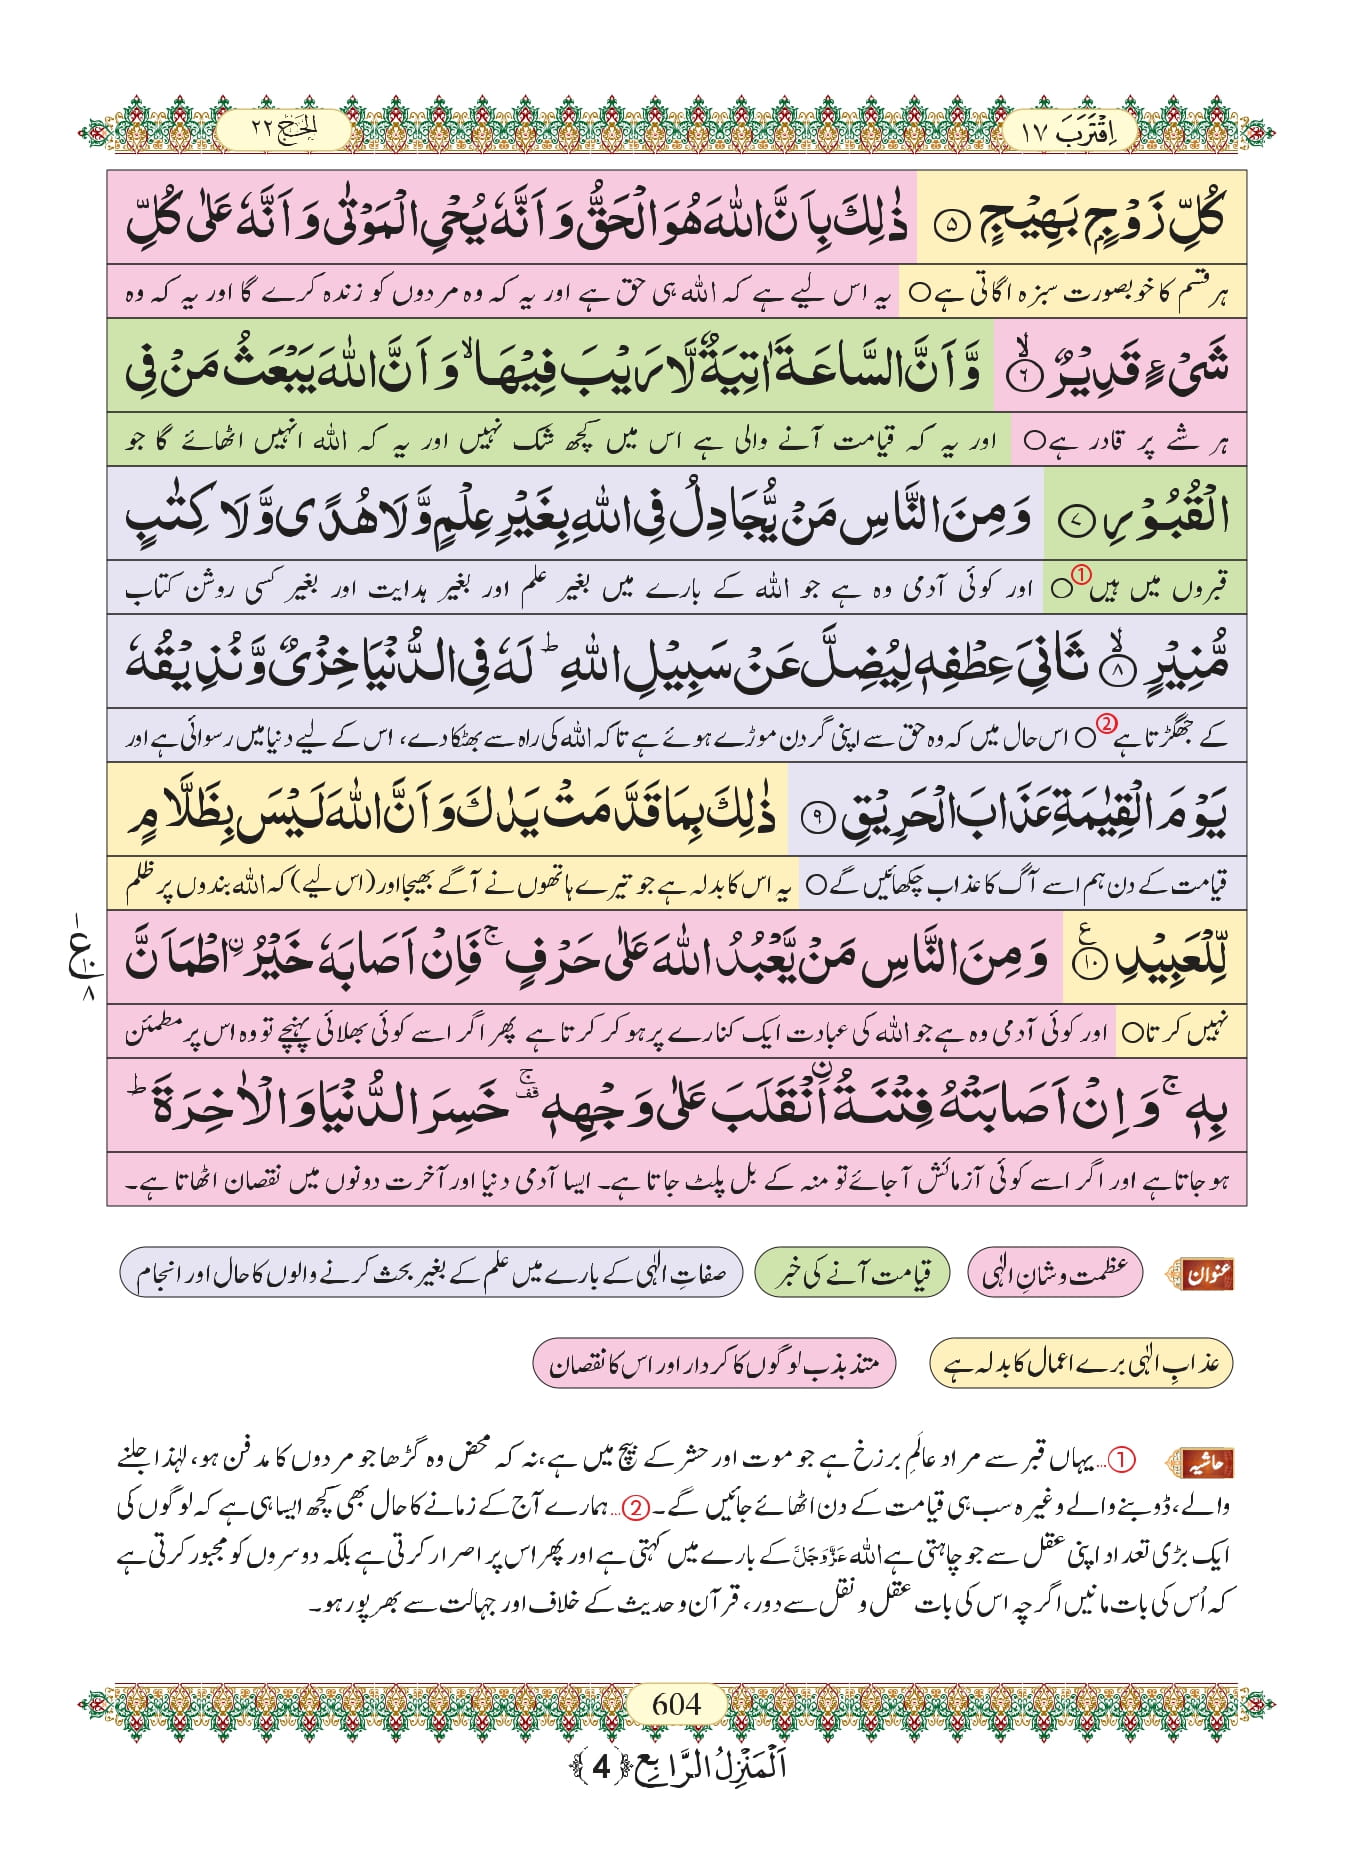 اِقْتَرَبَ ۱۷
الحَجّ ۲۲
كُلِّ زَوْجٍۭ بَهِیْجٍ ﴿۵﴾ ذٰلِكَ بِاَنَّ اللّٰهَ هُوَ الْحَقُّ وَ اَنَّهٗ یُحْیِ الْمَوْتٰى وَ اَنَّهٗ عَلٰى كُلِّ
ہر قسم کا خوبصورت سبزہ اگاتی ہے○ یہ اس لیے ہے کہ اللہ ہی حق ہے اور یہ کہ وہ مردوں کو زندہ کرے گا اور یہ کہ وہ
شَیْءٍ قَدِیْرٌ ﴿۶﴾ۙ وَّ اَنَّ السَّاعَةَ اٰتِیَةٌ لَّا رَیْبَ فِیْهَاۙ وَ اَنَّ اللّٰهَ یَبْعَثُ مَنْ فِی
ہر شے پر قادر ہے○ اور یہ کہ قیامت آنے والی ہے اس میں کچھ شک نہیں اور یہ کہ اللہ انہیں اٹھائے گا جو
الْقُبُوْرِ ﴿۷﴾ وَ مِنَ النَّاسِ مَنْ یُّجَادِلُ فِی اللّٰهِ بِغَیْرِ عِلْمٍ وَّ لَا هُدًى وَّ لَا كِتٰبٍ
قبروں میں ہیں①○ اور کوئی آدمی وہ ہے جو اللہ کے بارے میں بغیر علم اور بغیر ہدایت اور بغیر کسی روشن کتاب
مُّنِیْرٍ ﴿۸﴾ۙ ثَانِیَ عِطْفِهٖ لِیُضِلَّ عَنْ سَبِیْلِ اللّٰهِؕ لَهٗ فِی الدُّنْیَا خِزْیٌ وَّ نُذِیْقُهٗ
کے جھگڑتا ہے②○ اس حال میں کہ وہ حق سے اپنی گردن موڑے ہوئے ہے تاکہ اللہ کی راہ سے بھٹکا دے، اس کے لیے دنیا میں رسوائی ہے اور
یَوْمَ الْقِیٰمَةِ عَذَابَ الْحَرِیْقِ ﴿۹﴾ ذٰلِكَ بِمَا قَدَّمَتْ یَدٰكَ وَ اَنَّ اللّٰهَ لَیْسَ بِظَلَّامٍ
قیامت کے دن ہم اسے آگ کا عذاب چکھائیں گے○ یہ اس کا بدلہ ہے جو تیرے ہاتھوں نے آگے بھیجا اور (اس لیے) کہ اللہ بندوں پر ظلم
لِّلْعَبِیْدِ ﴿۱۰﴾ۧ وَ مِنَ النَّاسِ مَنْ یَّعْبُدُ اللّٰهَ عَلٰى حَرْفٍۚ فَاِنْ اَصَابَهٗ خَیْرُ ﰳاطْمَاَنَّ
۱
ع
۱۰
۸
نہیں کرتا○ اور کوئی آدمی وہ ہے جو اللہ کی عبادت ایک کنارے پر ہو کر کرتا ہے پھر اگر اسے کوئی بھلائی پہنچے تو وہ اس پر مطمئن
بِهٖۚ وَ اِنْ اَصَابَتْهُ فِتْنَةُ ﰳانْقَلَبَ عَلٰى وَجْهِهٖ قفۚ خَسِرَ الدُّنْیَا وَ الْاٰخِرَةَؕ
ہو جاتا ہے اور اگر اسے کوئی آزمائش آجائے تو منہ کے بل پلٹ جاتا ہے۔ ایسا آدمی دنیا اور آخرت دونوں میں نقصان اٹھاتا ہے۔
عنوان عظمت و شانِ الٰہی قیامت آنے کی خبر صفاتِ الٰہی کے بارے میں علم کے بغیر بحث کرنے والوں کا حال اور انجام
عذابِ الٰہی برے اعمال کا بدلہ ہے متذبذب لوگوں کا کردار اور اس کا نقصان
حاشیہ ①...یہاں قبر سے مراد عالَمِ برزخ ہے جو موت اور حشر کے بیچ میں ہے، نہ کہ محض وہ گڑھا جو مردوں کا مدفن ہو، لہٰذا جلنے
والے، ڈوبنے والے وغیرہ سب ہی قیامت کے دن اٹھائے جائیں گے۔②...ہمارے آج کے زمانے کا حال بھی کچھ ایسا ہی ہے کہ لوگوں کی
ایک بڑی تعداد اپنی عقل سے جو چاہتی ہے اللہ عَزَّوَجَلَّ کے بارے میں کہتی ہے اور پھر اس پر اصرار کرتی ہے بلکہ دوسروں کو مجبور کرتی ہے
کہ اُس کی بات مانیں اگرچہ اس کی بات عقل و نقل سے دور، قرآن و حدیث کے خلاف اور جہالت سے بھرپور ہو۔
604
اَلْمَنْزِلُ الرَّابِع ﴿4﴾